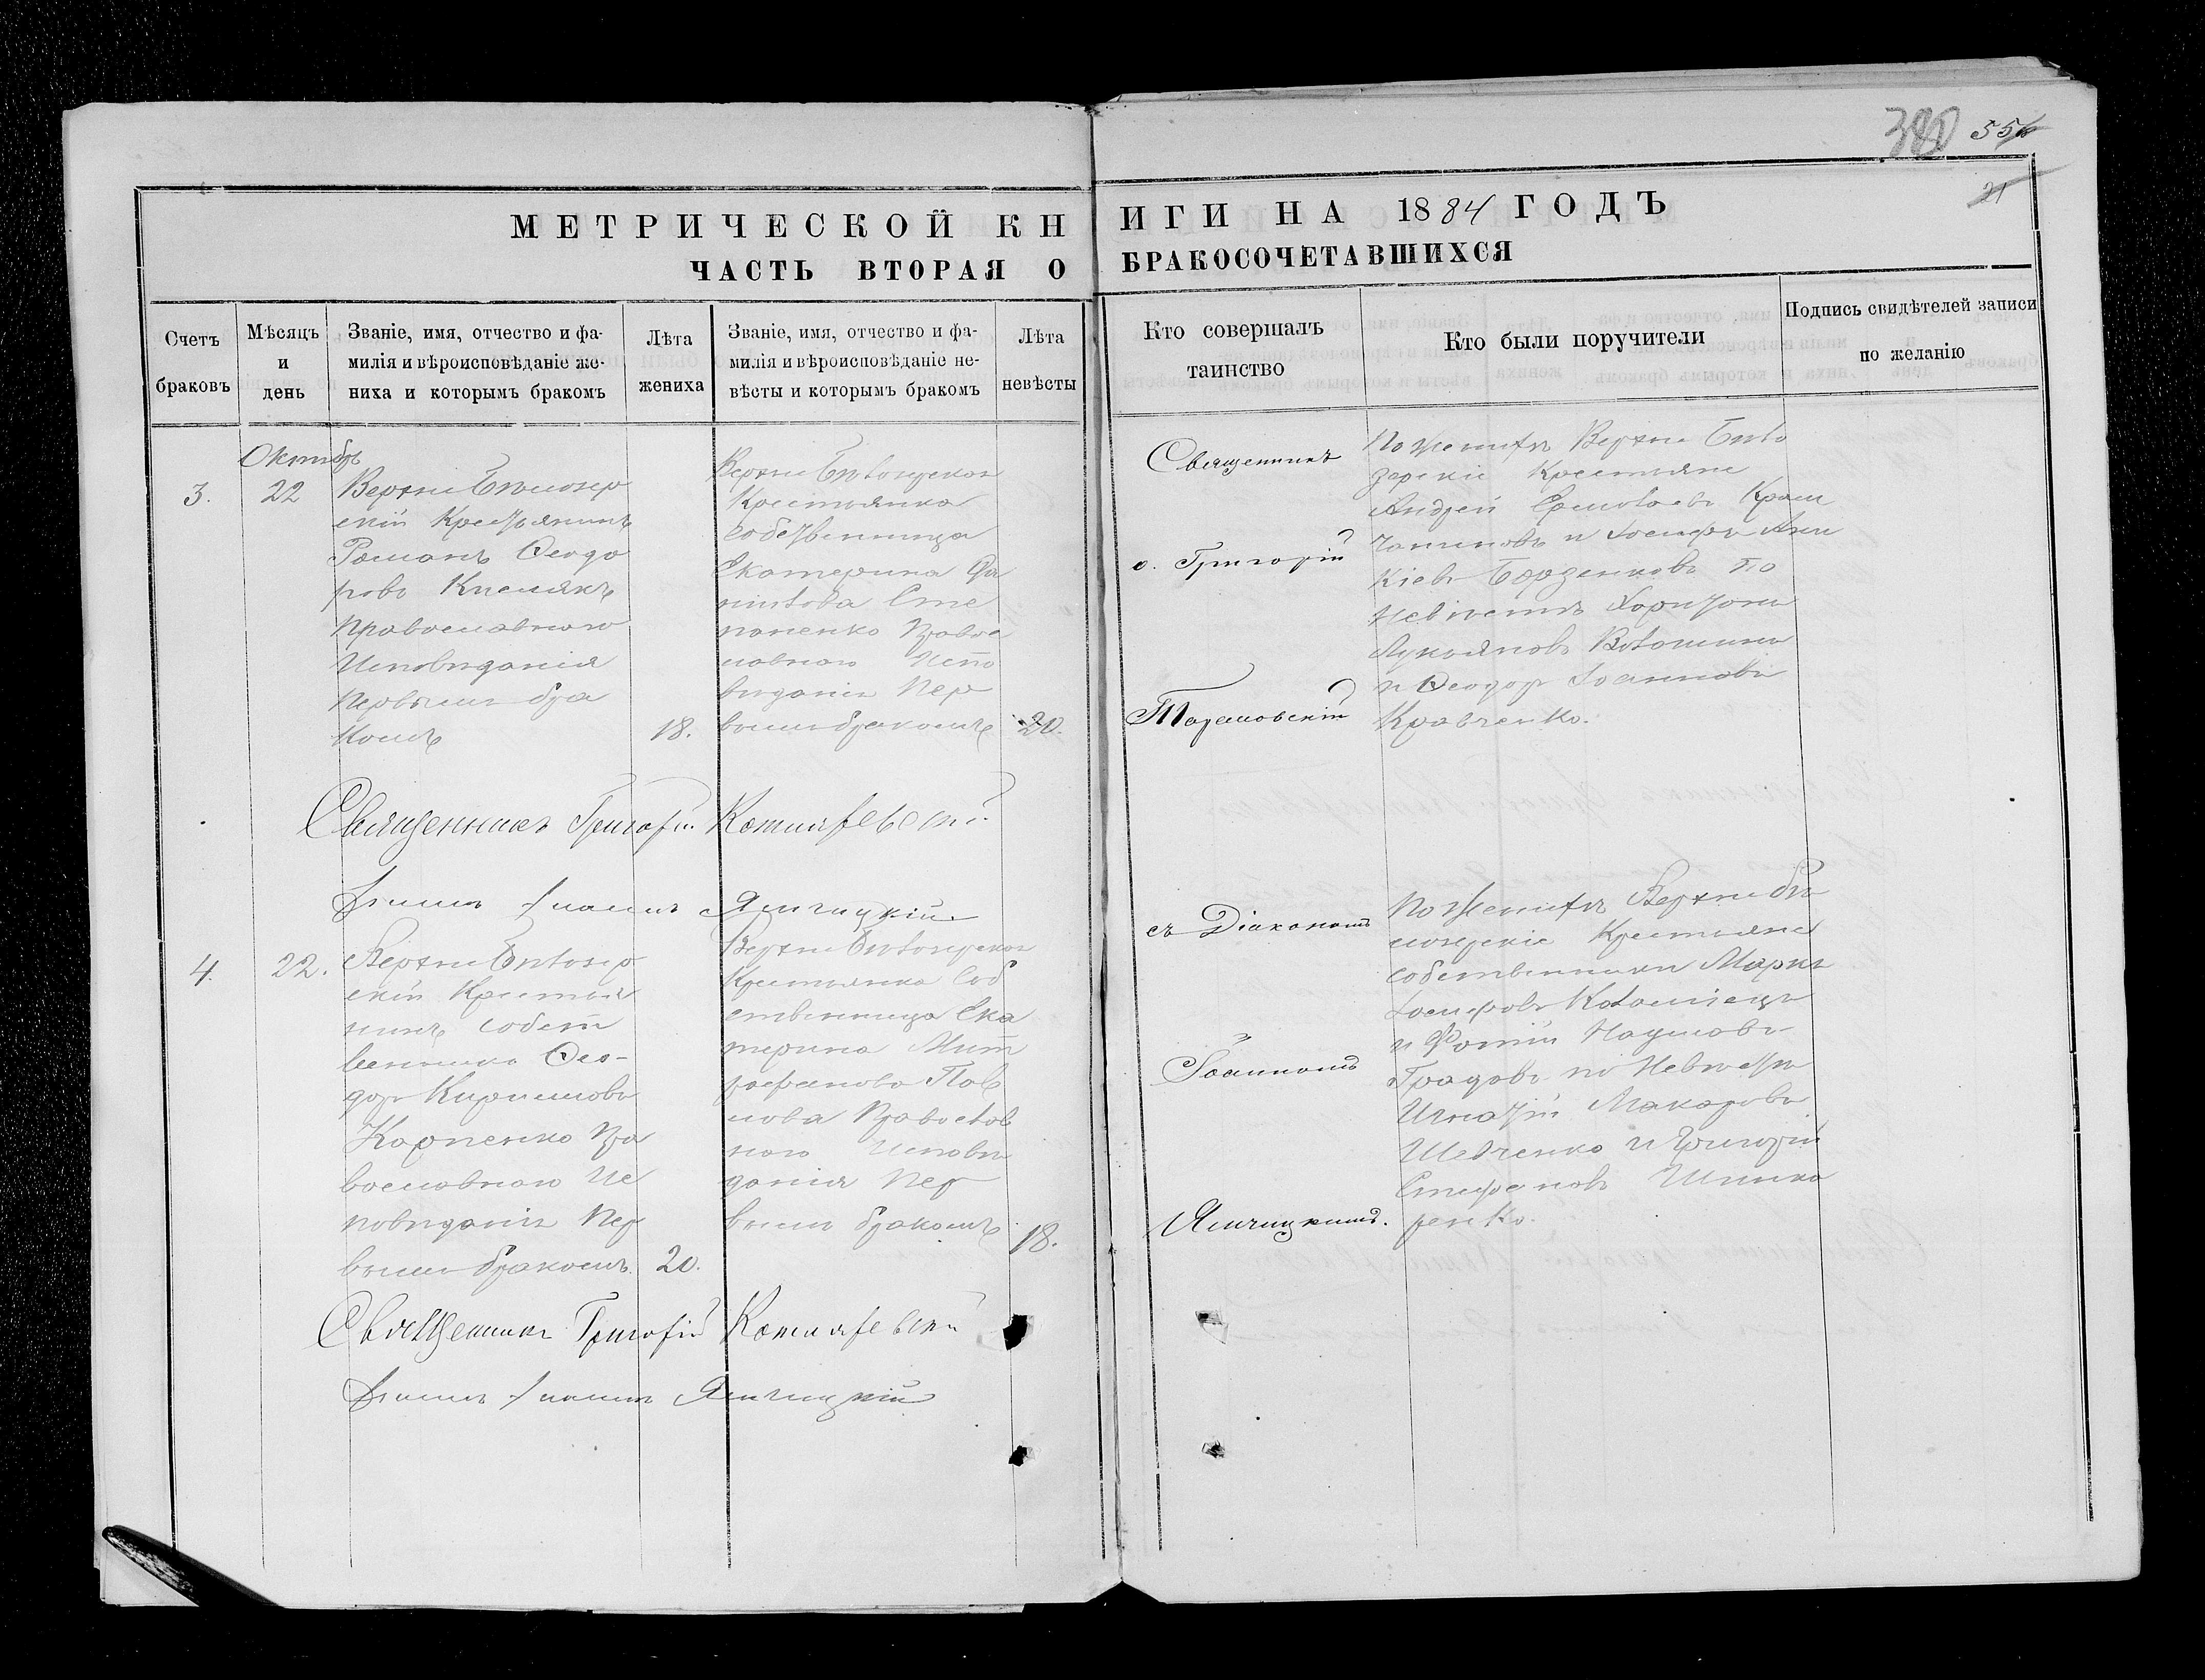 380 55
21
МЕТРИЧЕСКОЙ КНИГИ НА 1884 ГОДЪ
ЧАСТЬ ВТОРАЯ О БРАКОСОЧЕТАВШИХСЯ
Счетъ браковъ
Мѣсяцъ и день
Званіе, имя, отчество и фа-
милія и вѣроисповѣданіе же-
ниха и которымъ бракомъ
Лѣта жениха
Званіе, имя, отчество и фа-
милія и вѣроисповѣданіе не-
вѣсты и которымъ бракомъ
Лѣта невѣсты
Кто совершалъ
таинство
Кто были поручители
Подпись свидѣтелей записи
по желанію
3.
Октябрь
22
Верхне Бѣлозер
скій Крестьянинъ
Романъ Ѳеодо
ровъ Кисилякъ
Православнаго
Исповѣданія
Первымъ бра
комъ
18.
Верхне Бѣлозерская
Крестьянка
собственница
Екатерина
Сте
паненко Правос
лавнаго Испо
вѣданія Пер
вымъ бракомъ
20.
Священникъ
о. Григорій
По Женихѣ Верхне Бѣло
зерскіе Крестьяне
Андрей Ермолаевъ
и Іосифъ
По
Невѣстѣ Харитонъ
Лукьяновъ Волошинъ
и Ѳеодоръ Іоанновъ
Кравченко.
Священникъ Григорій Котляревскій
Ямчицкій
4.
22.
Верхне Бѣлозер
скій Крестья
нинъ собст
венникъ Ѳео-
доръ Кириловъ
Карпенко Пра
вославнаго Ис
повѣданія Пер
вымъ бракомъ
20.
Верхне Бѣлозерская
Крестьянка Соб
ственница Ека
терина Мит
рофанова Пав
лова Православ
наго Исповѣ
данія Пер
вымъ бракомъ
18.
съ Діакономъ
Іоанномъ
Ямчицкимъ.
По Женихѣ Верхне Бѣ
лозерскіе Крестьяне
собственники Маркъ
Іосифовъ Коломіецъ
и Фотій Наумовъ
Градовъ по Невѣстѣ
Игнатій Макаровъ
Шевченко и Григорій
Стефановъ Шинка
ренко.
Священникъ Григорій Котляревскій
Ямчицкій